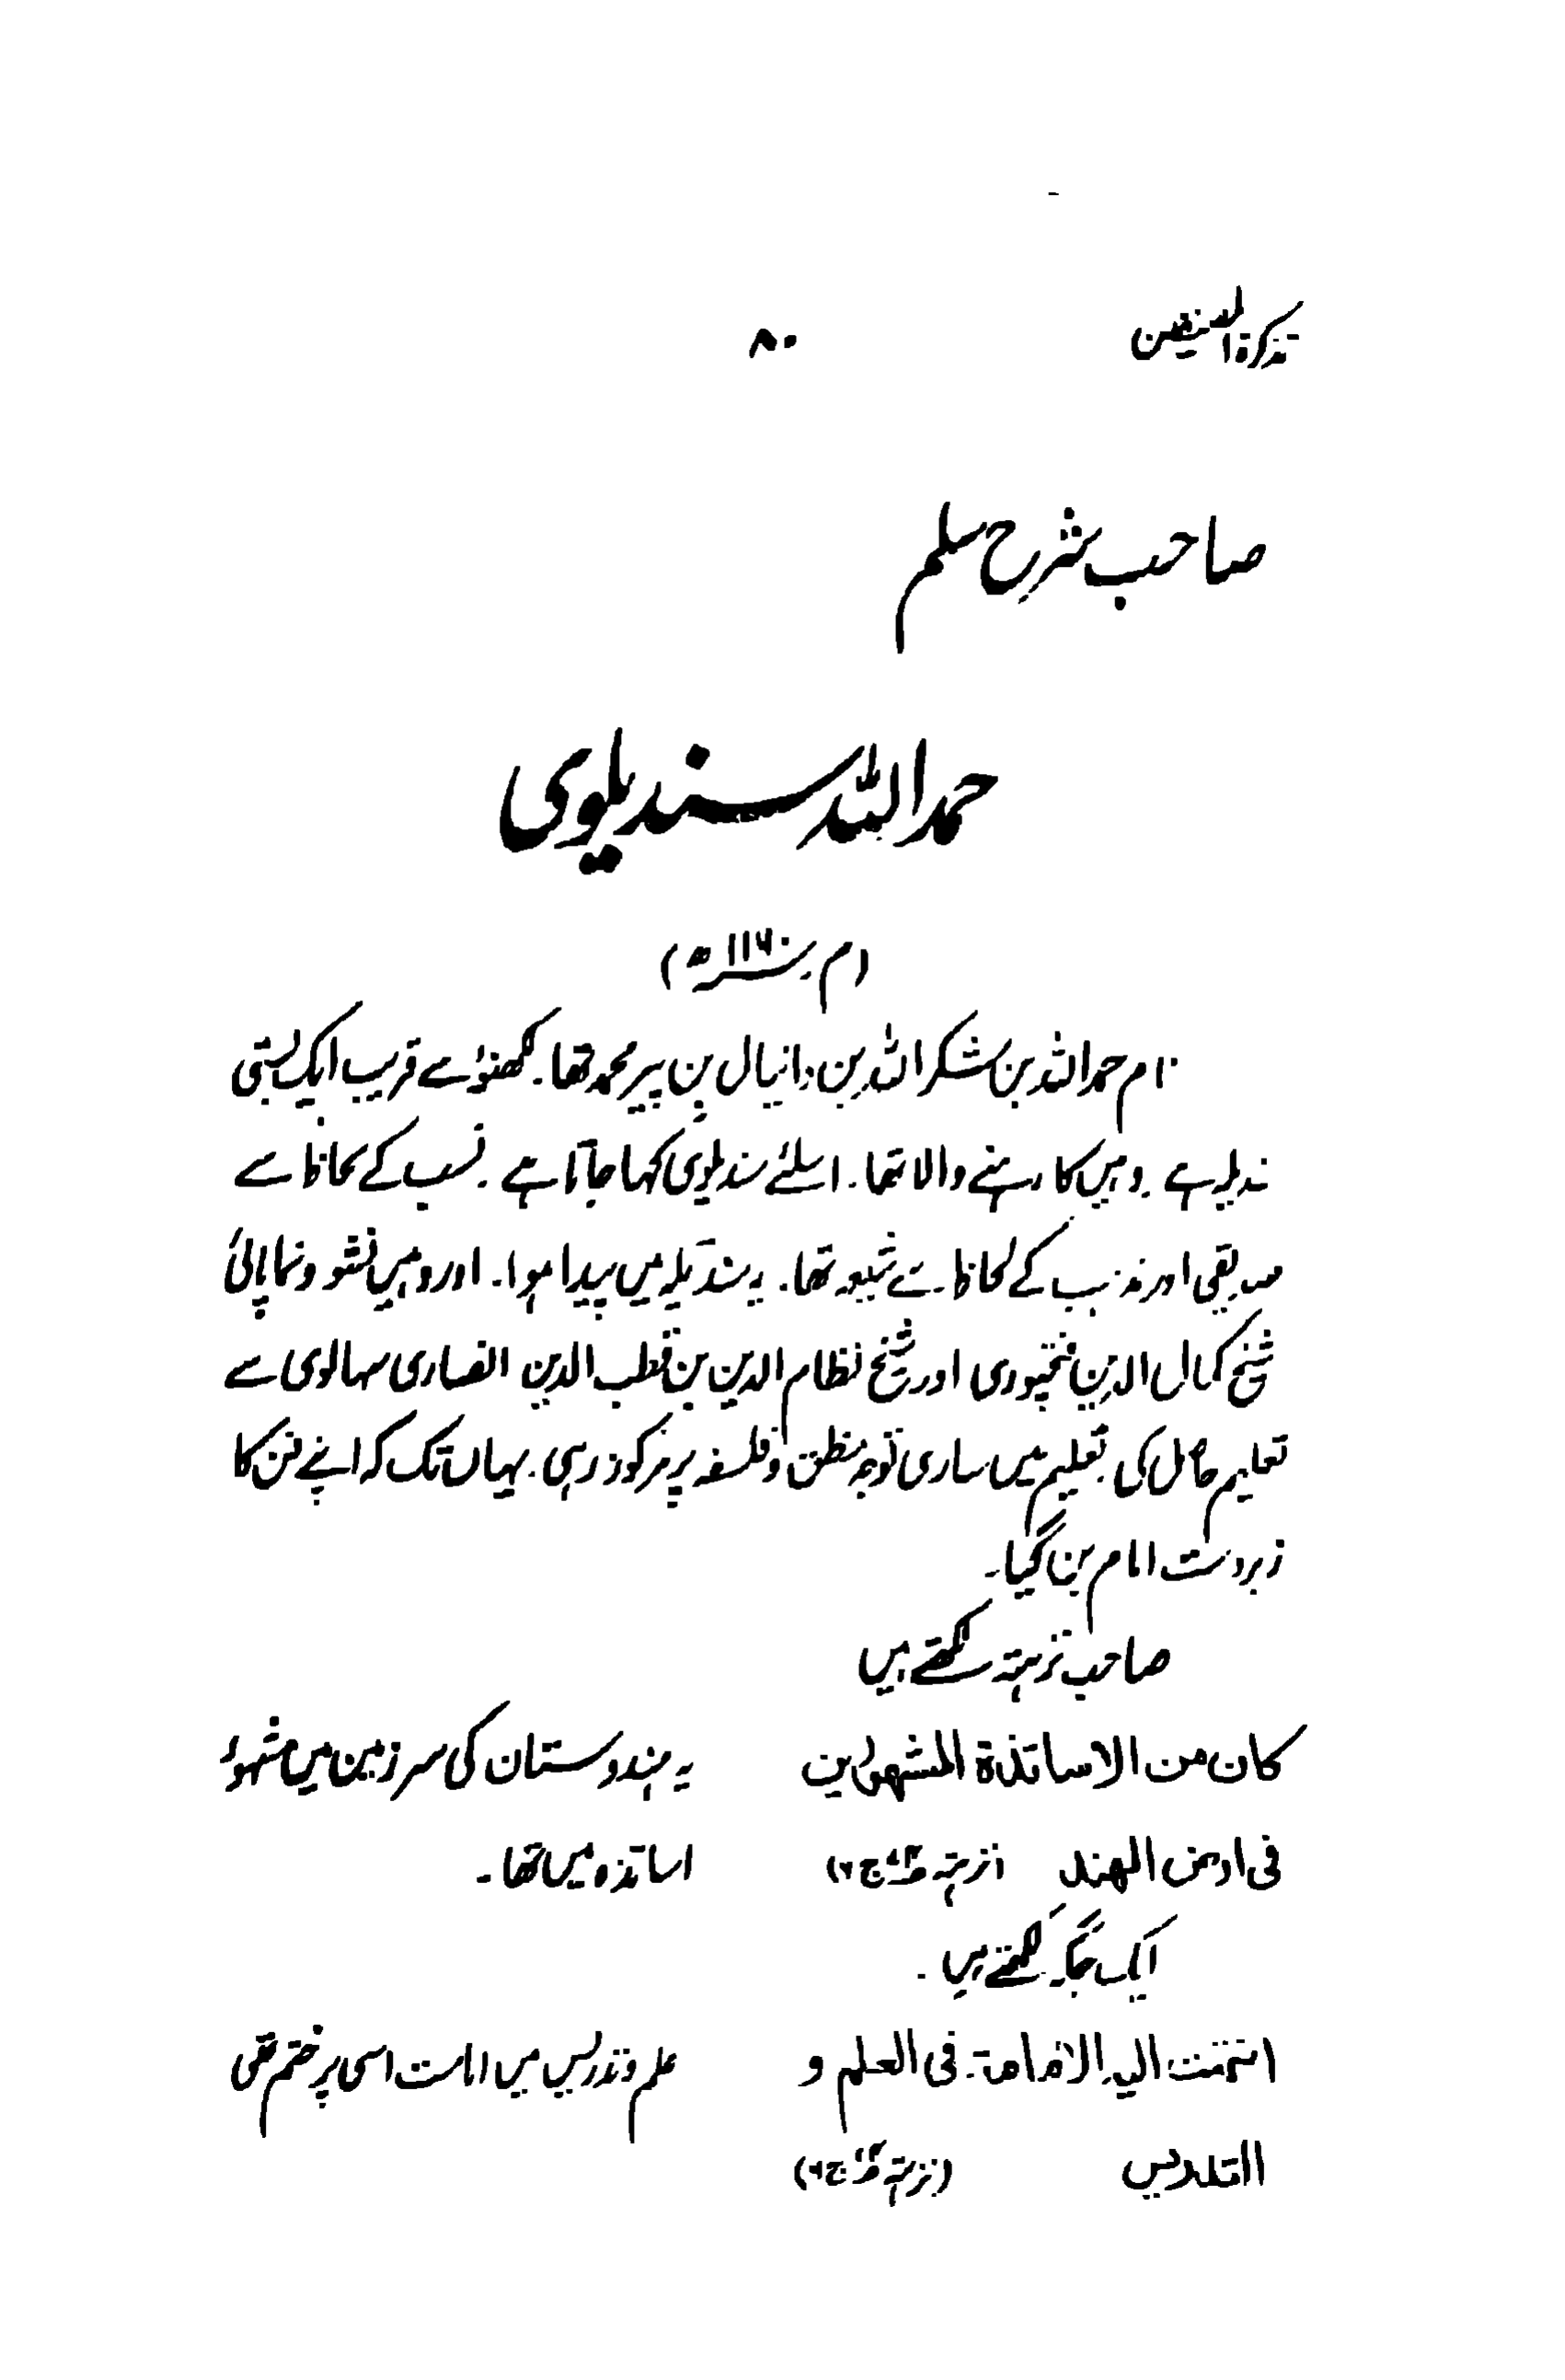 تذکرۃ المصنفین ۸۰
صاحب شرح سلم
حمد اللہ سندیلوی
(م سنہ ۱۱۶۰ھ)
نام حمد اللہ بن شکر اللہ بن دانیال بن پیر محمد تھا۔ لکھنؤ سے قریب ایک بستی
ندیلہ ہے ۔ وہیں کا رہنے والا تھا ۔ اسلئے سندیلوی کہا جاتا ہے ۔ نسب کے لحاظ سے
صدیقی اور مذہب کے لحاظ سے شیعہ تھا ۔ یہ سندیلہ میں پیدا ہوا ۔ اور وہیں نشو و نما پائی
شیخ کمال الدین فتحپوری اور شیخ نظام الدین بن قطب الدین انصاری سہالوی سے
تعلیم حاصل کی ۔ تعلیم میں ساری توجہ منطق و فلسفہ پر مرکوز رہی ۔ یہاں تک کہ اپنے فن کا
زبردست امام بن گیا ۔
صاحب نزہتہ لکھتے ہیں
کان من الاساتذۃ المشہورین یہ ہندوستان کی سرزمین میں مشہور
فی ارض الھند (نزہتہ ج۶) اساتذہ میں تھا ۔
ایک جگہ لکھتے ہیں ۔
انتھت الیہ الامامۃ فی العلم و علم و تدریس میں امامت اسی پر ختم تھی
التدریس (نزہتہ ج۶)